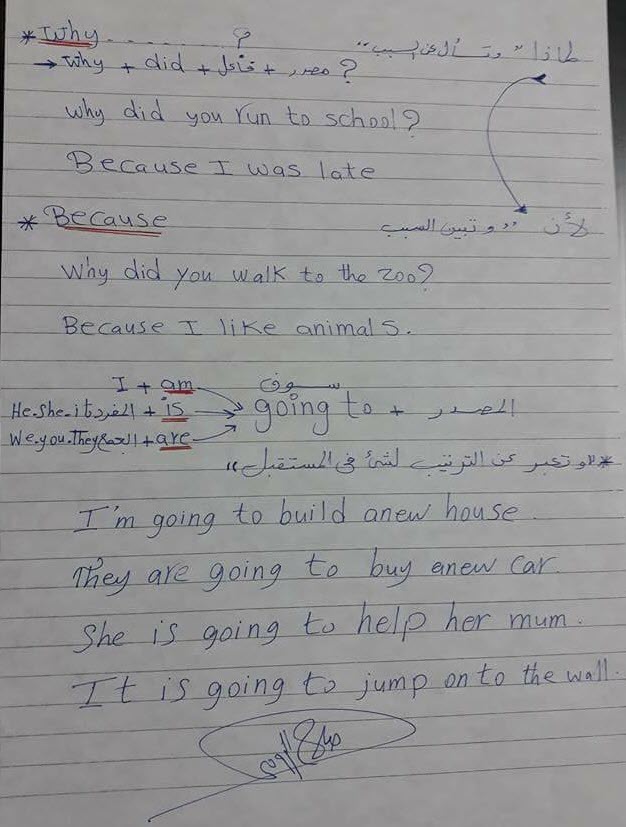 * Why ........... ? لماذا "وتسأل عن السبب"
→ Why + did + فاعل + مصدر ?
Why did you run to school?
Because I was late
* Because لأن "وتبين السبب
Why did you walk to the zoo?
Because I like animals.
I + am سوف
He.She.it المفرد + is going to + المصدر
We.you.They الجمع + are
* "وتعبر عن الترتيب لشئ فى المستقبل"
I'm going to build anew house.
They are going to buy anew car.
She is going to help her mum.
It is going to jump on to the wall.